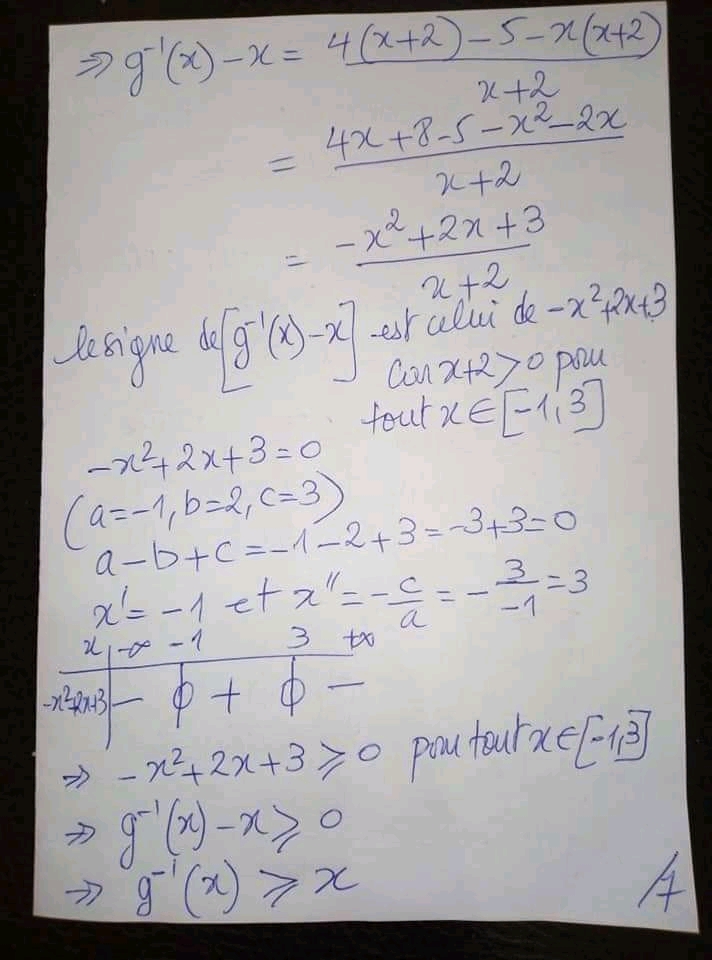 ⇒ g⁻¹(x) - x = 4(x+2) - 5 - x(x+2)
x+2
= 4x + 8 - 5 - x² - 2x
x+2
= -x² + 2x + 3
x+2
le signe de [g⁻¹(x) - x] est celui de -x²+2x+3
car x+2 > 0 pour
tout x ∈ [-1, 3]
-x² + 2x + 3 = 0
(a=-1, b=2, c=3)
a - b + c = -1 - 2 + 3 = -3+3 = 0
x' = -1 et x'' = -c/a = -3/-1 = 3
x -∞ -1 3 +∞
-x²+2x+3 - 0 + 0 -
⇒ -x² + 2x + 3 ⩾ 0 pour tout x ∈ [-1, 3]
⇒ g⁻¹(x) - x ⩾ 0
⇒ g⁻¹(x) ⩾ x